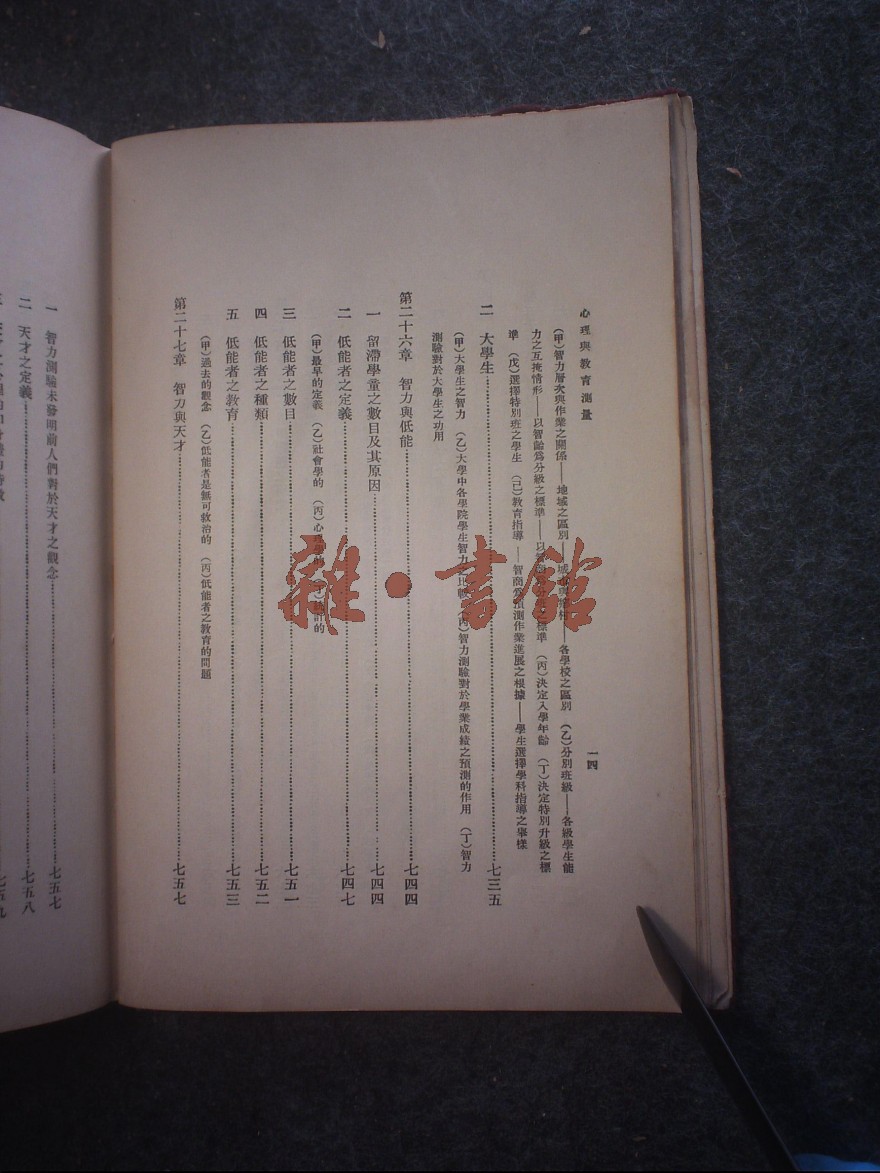 心理與教育測量
一四
(甲)智力層次與作業之關係——地域之區別——城市與鄉村——各學校之區別 (乙)分別班級——各級學生能
力之互掩情形——以智齡爲分級之標準——以智商爲分級之標準 (丙)決定入學年齡 (丁)決定特別升級之標
準 (戊)選擇特別班之學生 (己)教育指導——智商爲預測作業進展之根據——學生選擇學科指導之舉樣
二 大學生……七三五
(甲)大學生之智力 (乙)大學中各學院學生智力之比較 (丙)智力測驗對於學業成績之預測的作用 (丁)智力
測驗對於大學生之功用
第二十六章 智力與低能……七四四
一 留滯學童之數目及其原因……七四四
二 低能者之定義……七四七
(甲)最早的定義 (乙)社會學的 (丙)心理學的 (丁)統計的
三 低能者之數目……七五一
四 低能者之種類……七五二
五 低能者之教育……七五三
(甲)過去的觀念 (乙)低能者是無可救治的 (丙)低能者之教育的問題
第二十七章 智力與天才……七五七
一 智力測驗未發明前人們對於天才之觀念……七五七
二 天才之定義……七五八
雜·書館